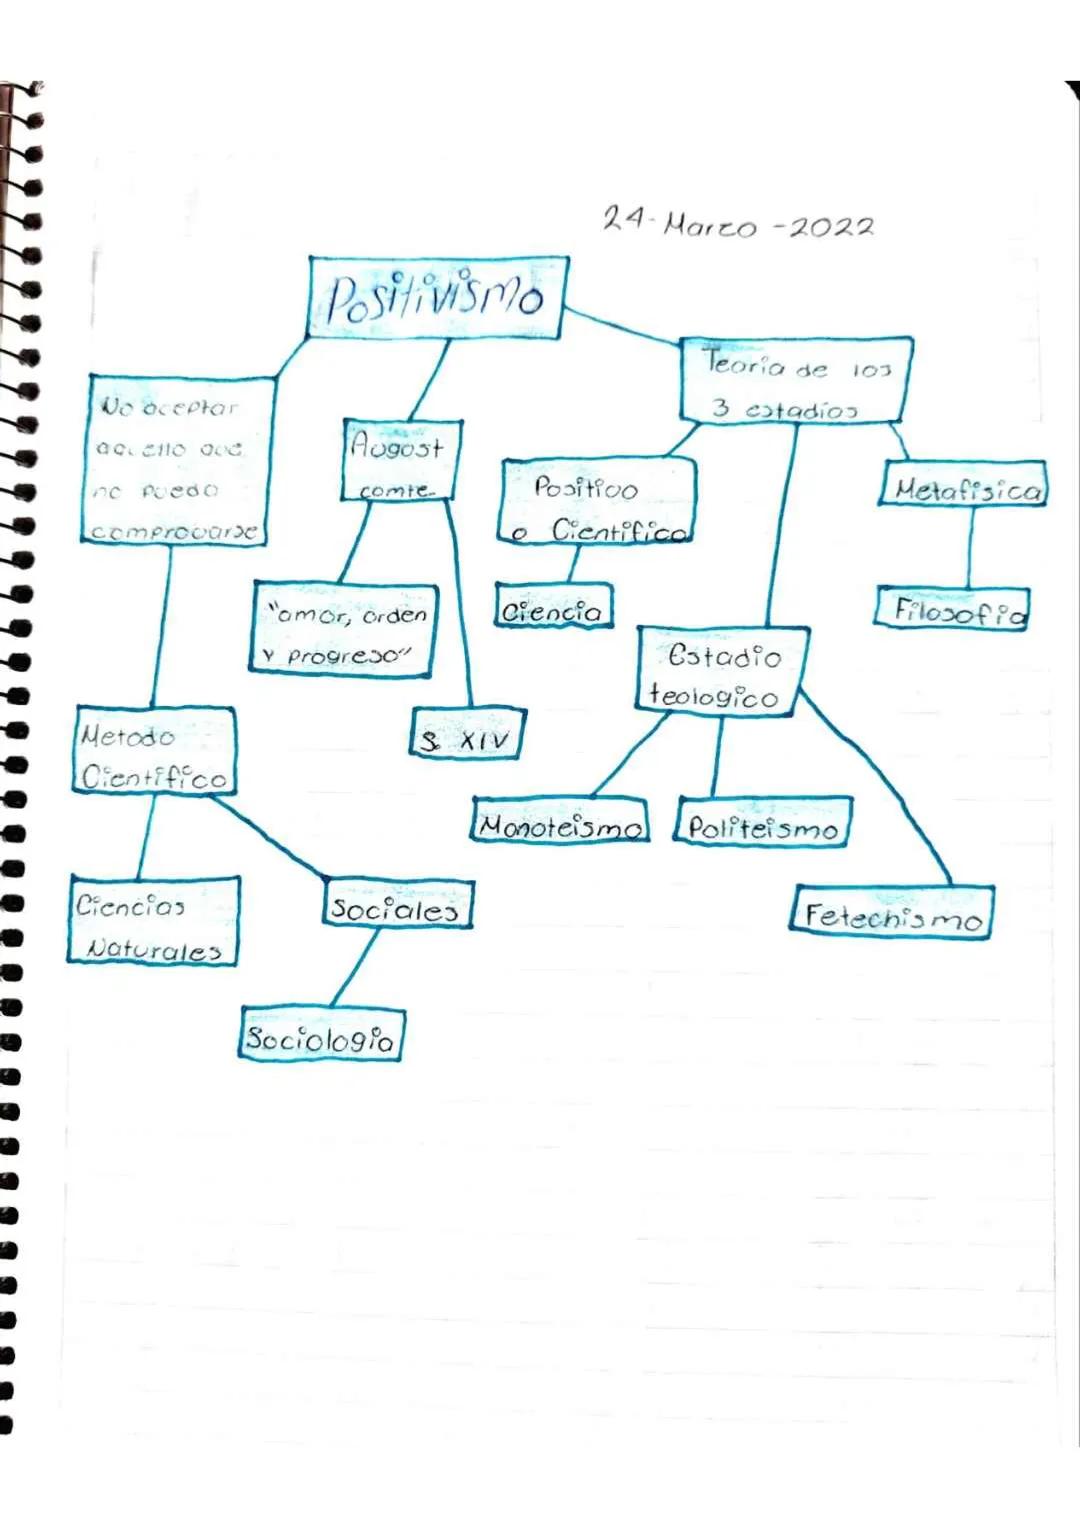 24-Marzo-2022
Positivismo
No aceptar
aquello que
no pueda
comprovarse
Metodo
Cientifico
Ciencias
Naturales
Sociales
Sociologia
August
comte
"amor, orden
y progreso"
S. XIV
Teoria de los
3 estadios
Positivo
o Cientifico
Ciencia
Estadio
teologico
Monoteismo
Politeismo
Fetechismo
Metafisica
Filosofia